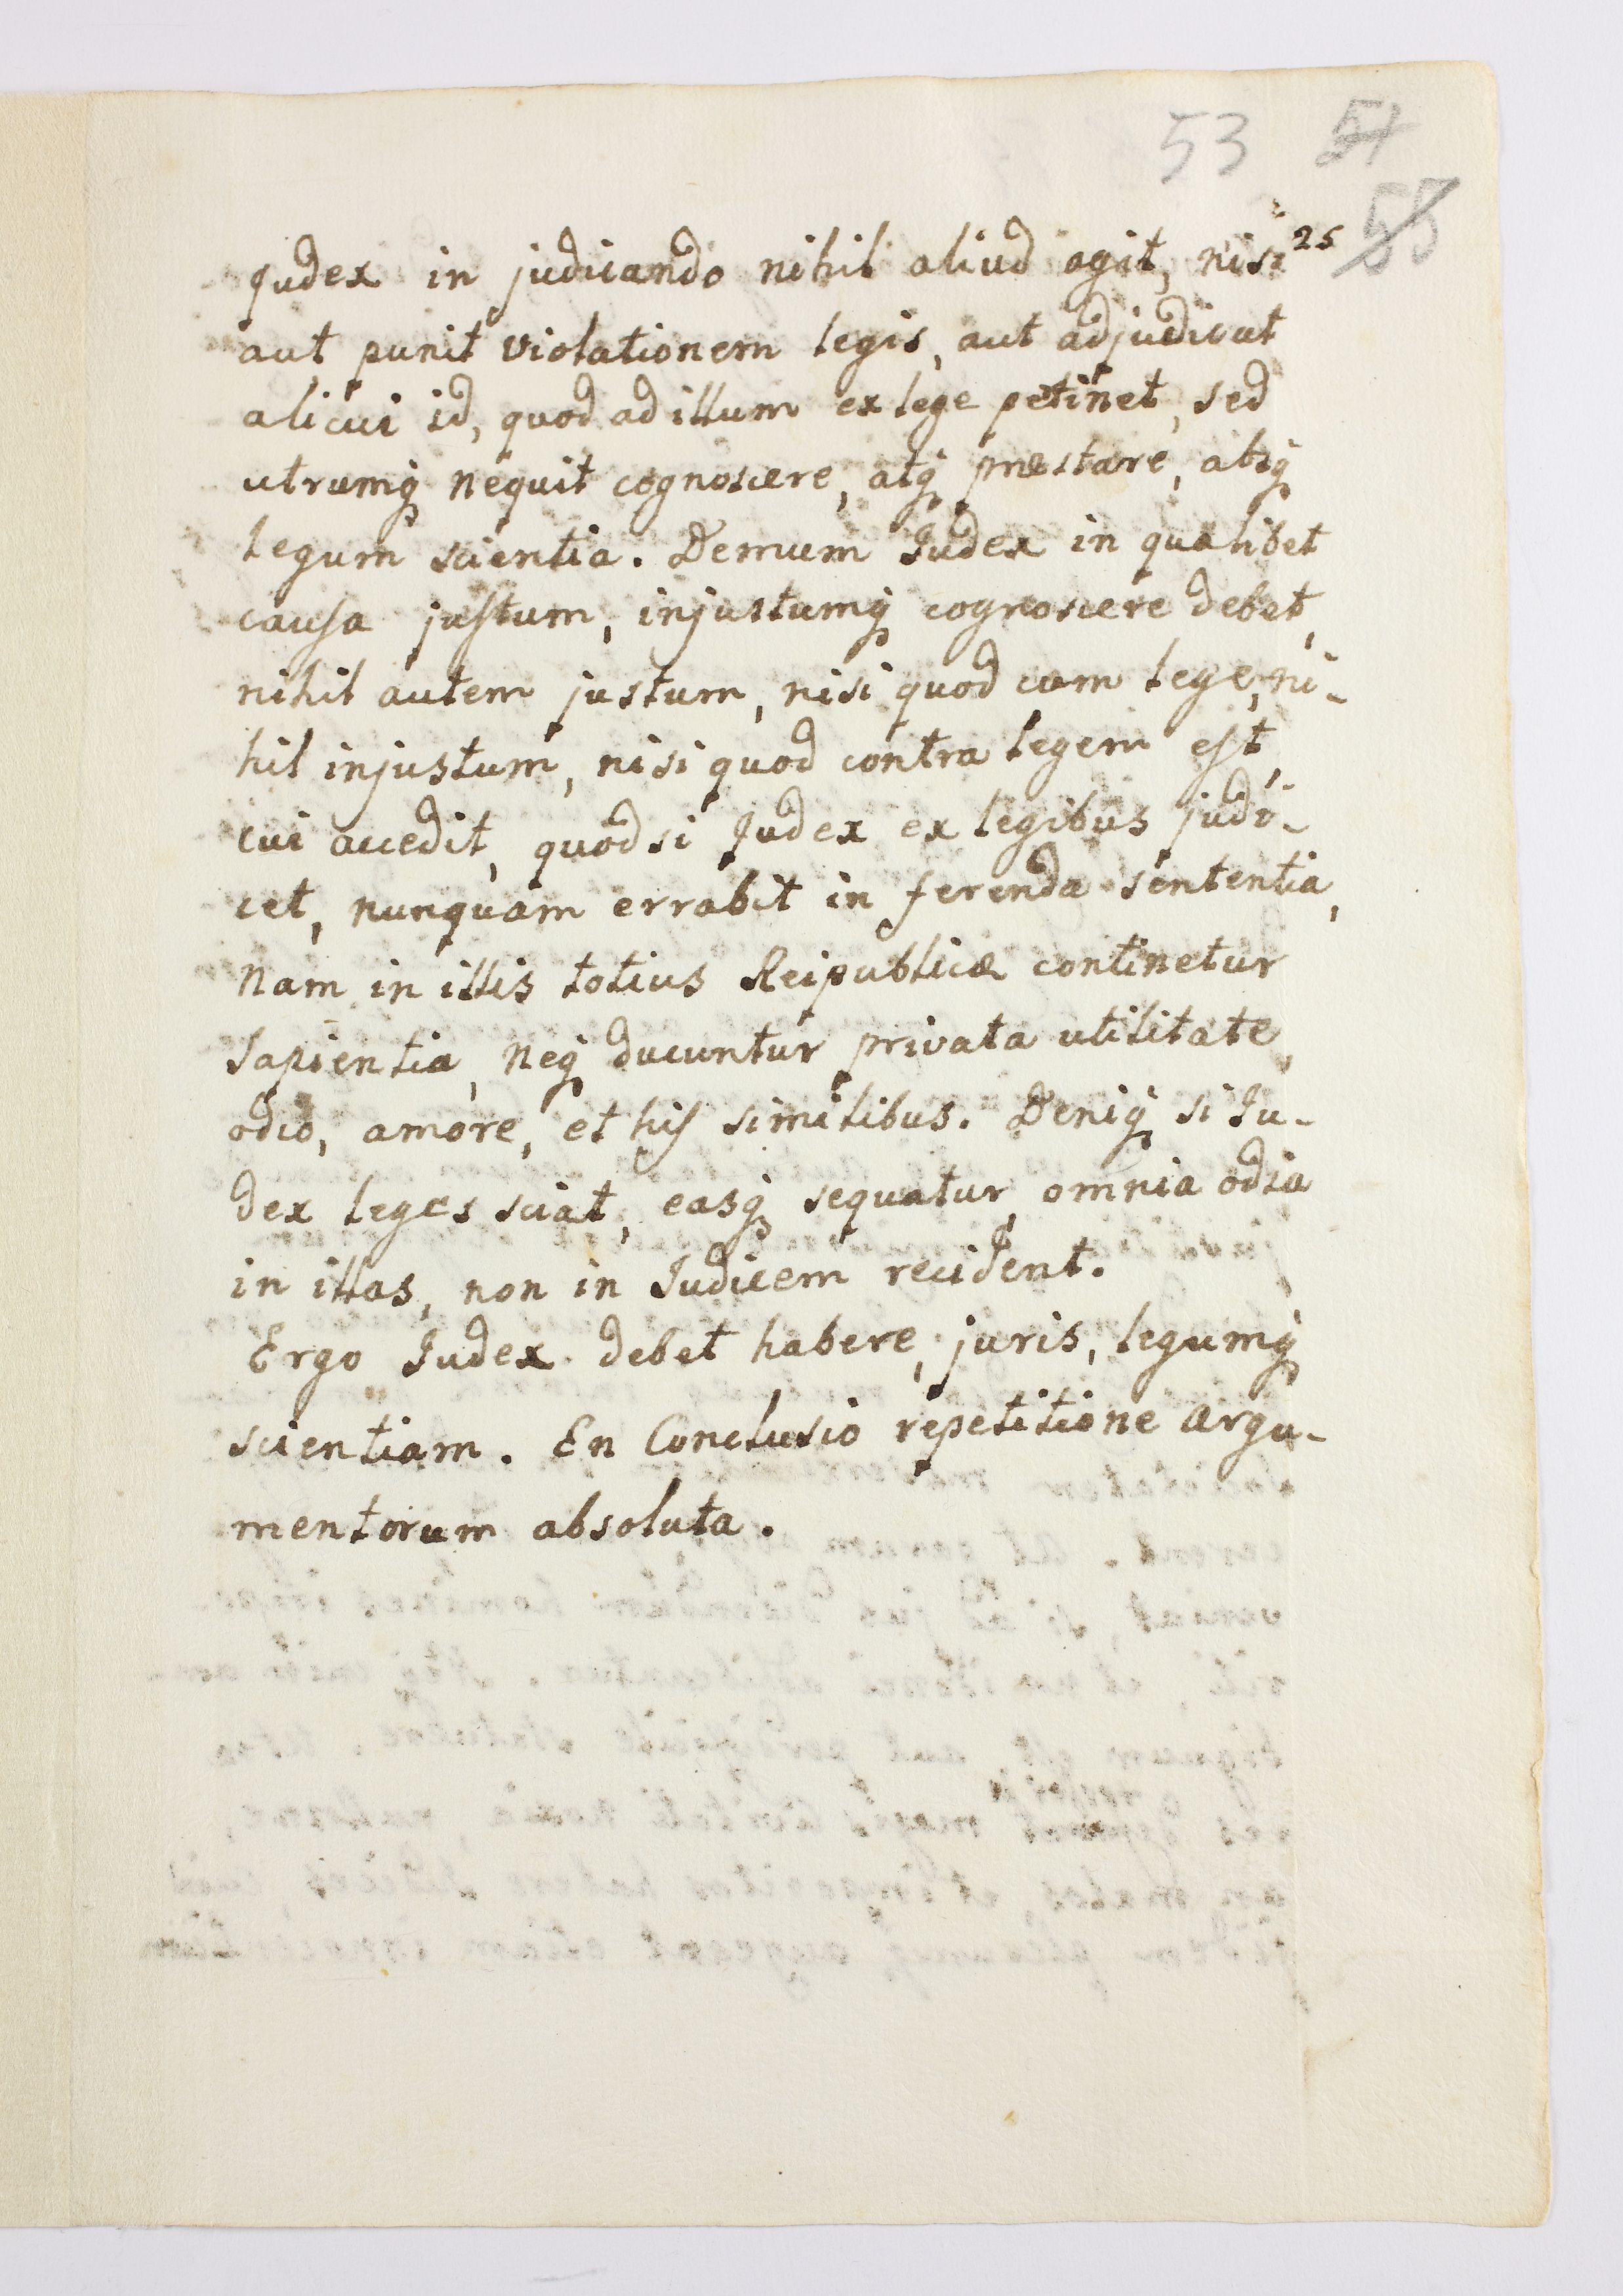 53 51
25 55
Judex in judicando nihil aliud agit, nisi
aut punit violationem legis, aut adjudicat
alicui id, quod ad illum ex lege petinet, sed
utrumq́ nequit cognoscere, atq́ præstare, absq́
legum scientia. Demum Judex in qualibet
cauſa juſtum, injustumq́ cognoscere debet,
nihil autem justum, nisi quod cum lege, ni-
hil injustum, nisi quod contra legem eſt,
cui accedit, quod si Judex ex legibus judi-
cet, nunquam errabit in ferenda sententia,
Nam in illis totius Reipublicæ continetur
Sapientia, Neq́ ducuntur privata utilitate,
odio, amore, et hiſ similibus. Deniq́ si Ju-
dex leges sciat, easq́ sequatur, omnia odia
in illas, non in Judicem recident.
Ergo Judex debet habere, juris, legumq́
scientiam. En Conclusio repetitione argu-
mentorum absoluta.